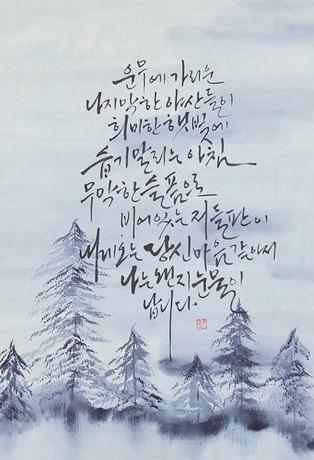 운무에 가리운
나지막한 야산들이
희미한 햇빛에
습기 말리는 아침
무막한 슬픔으로
비어있는 저 들판이
내게 오는 당신 마음 같아서
나는 왠지 눈물이
납니다.